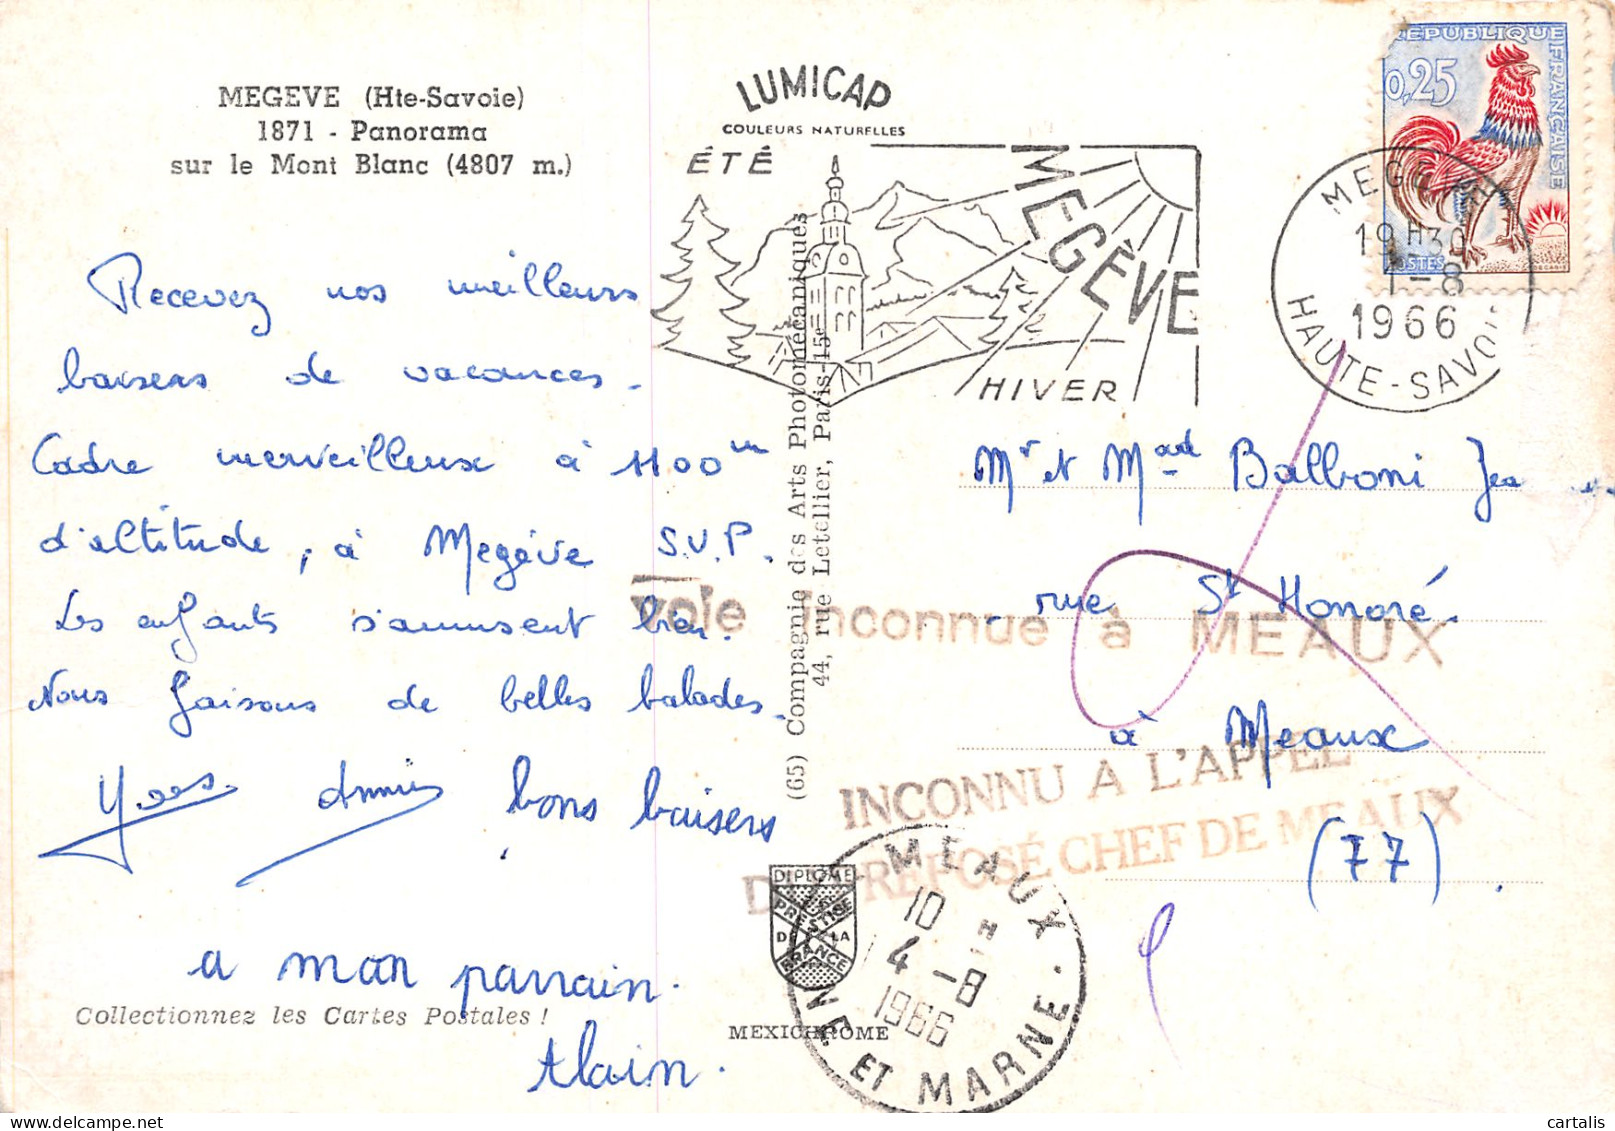 MEGEVE (Hte-Savoie)
1871 - Panorama
sur le Mont Blanc (4807 m.)
Recevez nos meilleurs
baisers de vacances.
Cadre merveilleux à 1100m
d'altitude, à Megève S.V.P.
Les enfants s'amusent bien.
Nous faisons de belles balades.
Yves. Annie bons baisers
a mon parrain.
Alain.
Collectionnez les Cartes Postales !
LUMICAP
COULEURS NATURELLES
ÉTÉ
MEGÈVE
HIVER
(65) Compagnie des Arts Photomécaniques
44, rue Letellier, Paris-15e
DIPLOME
PRESTIGE
DE LA
FRANCE
MEXICHROME
RÉPUBLIQUE FRANÇAISE
0,25
POSTES
DECARIS
MEGEVE
19H30
1-8
1966
HAUTE-SAVOIE
Mr et Made Balboni
rue St Honoré.
à Meaux
(77).
voie inconnue à MEAUX
INCONNU A L'APPEL
DU PREPOSÉ CHEF DE MEAUX
MEAUX
10 H
4-8
1966
SEINE ET MARNE
cartalis